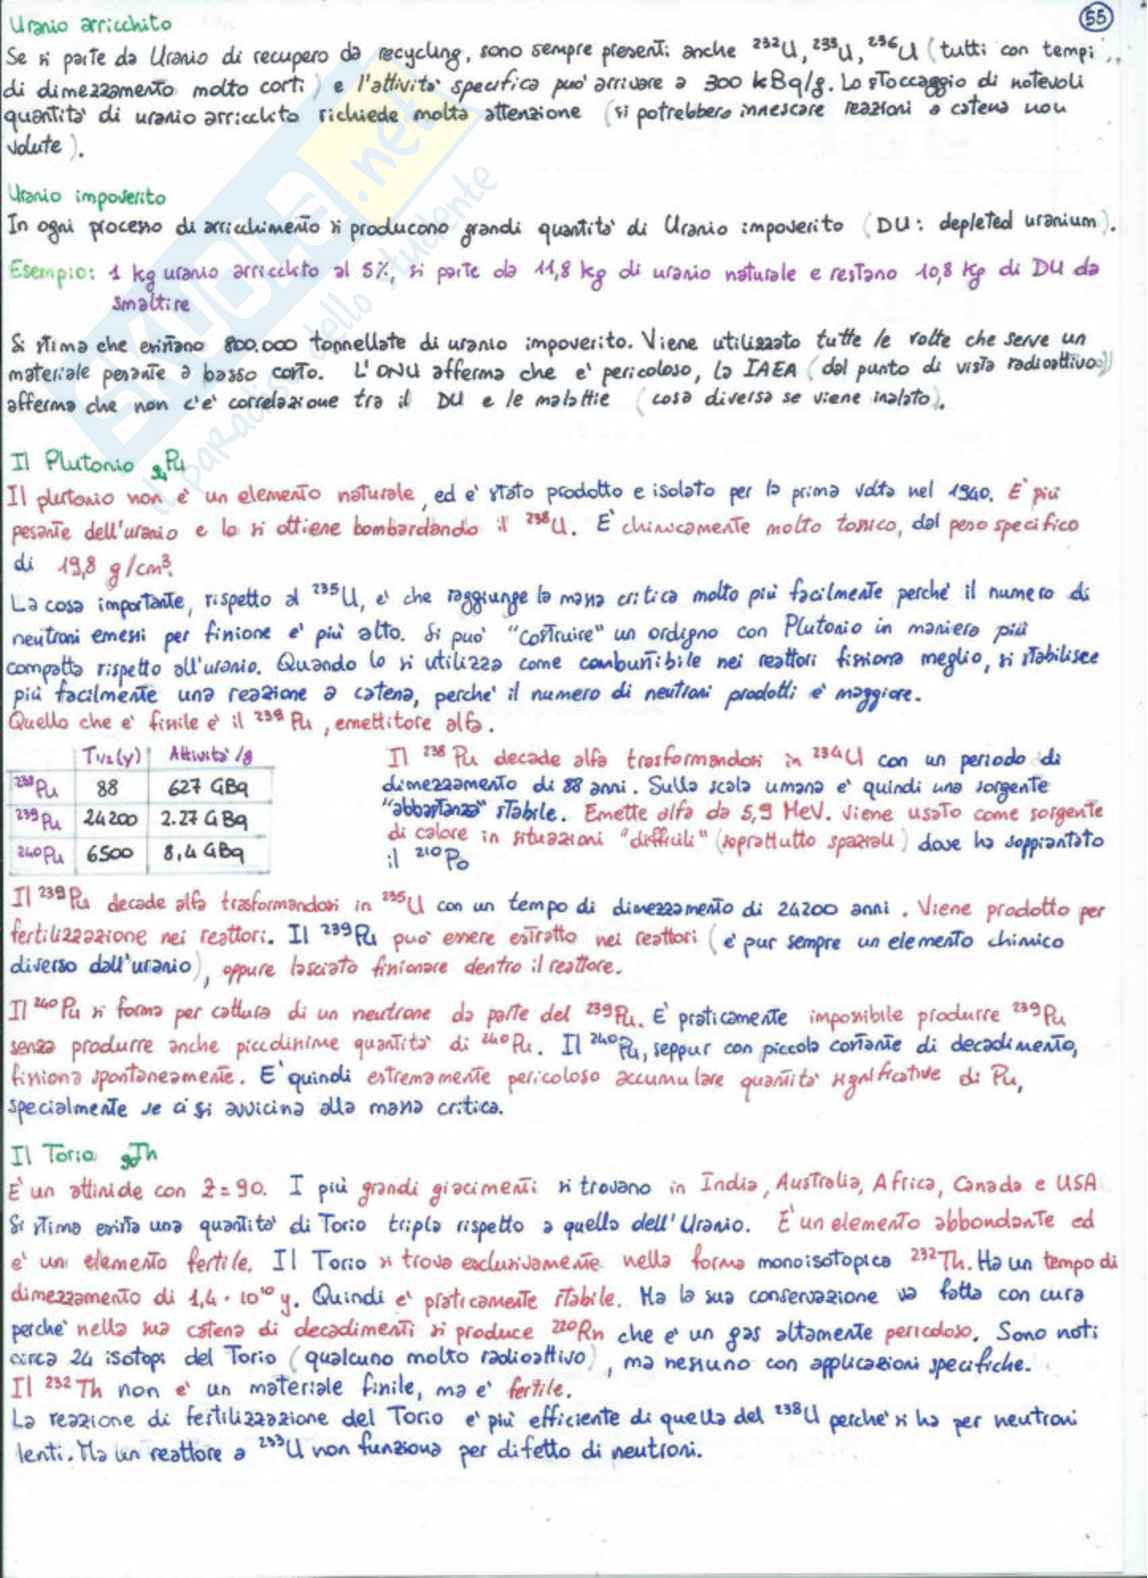 55
Uranio arricchito
Se si parte da Uranio di recupero da recycling, sono sempre presenti anche ²³²U, ²³³U, ²³⁶U (tutti con tempi
di dimezzamento molto corti) e l'attivita' specifica puo' arrivare a 300 kBq/g. Lo stoccaggio di notevoli
quantita' di uranio arricchito richiede molta attenzione (si potrebbero innescare reazioni a catena non
volute).
Uranio impoverito
In ogni processo di arricchimento si producono grandi quantita' di Uranio impoverito (DU: depleted uranium).
Esempio: 1 kg uranio arricchito al 5%, si parte da 11,8 kg di uranio naturale e restano 10,8 kg di DU da
smaltire
Si stima che esistano 800.000 tonnellate di uranio impoverito. Viene utilizzato tutte le volte che serve un
materiale pesante a basso costo. L'ONU afferma che e' pericoloso, la IAEA (dal punto di vista radioattivo)
afferma che non c'e' correlazione tra il DU e le malattie (cosa diversa se viene inalato).
Il Plutonio ₉₄Pu
Il plutonio non è un elemento naturale, ed e' stato prodotto e isolato per la prima volta nel 1940. E' piú
pesante dell'uranio e lo si ottiene bombardando il ²³⁸U. E' chimicamente molto tossico, dal peso specifico
di 19,8 g/cm³.
La cosa importante, rispetto al ²³⁵U, e' che raggiunge la massa critica molto piú facilmente perche' il numero di
neutroni emessi per fissione e' piú alto. Si puo' "costruire" un ordigno con Plutonio in maniera piú
compatta rispetto all'uranio. Quando lo si utilizza come combustibile nei reattori fissiona meglio, si stabilisce
piú facilmente una reazione a catena, perche' il numero di neutroni prodotti e' maggiore.
Quello che e' fissile e' il ²³⁹Pu, emettitore alfa.
T1/2(y) Attivita'/g
²³⁸Pu 88 627 GBq
²³⁹Pu 24200 2.27 GBq
²⁴⁰Pu 6500 8,4 GBq
Il ²³⁸Pu decade alfa trasformandosi in ²³⁴U con un periodo di
dimezzamento di 88 anni. Sulla scala umana e' quindi una sorgente
"abbastanza" stabile. Emette alfa da 5,9 MeV. Viene usato come sorgente
di calore in situazioni "difficili" (soprattutto spaziali) dove ha soppiantato
il ²¹⁰Po
Il ²³⁹Pu decade alfa trasformandosi in ²³⁵U con un tempo di dimezzamento di 24200 anni. Viene prodotto per
fertilizzazione nei reattori. Il ²³⁹Pu puo' essere estratto nei reattori (e' pur sempre un elemento chimico
diverso dall'uranio), oppure lasciato fissionare dentro il reattore.
Il ²⁴⁰Pu si forma per cattura di un neutrone da parte del ²³⁹Pu. E' praticamente impossibile produrre ²³⁹Pu
senza produrre anche piccolissime quantita' di ²⁴⁰Pu. Il ²⁴⁰Pu, seppur con piccola costante di decadimento,
fissiona spontaneamente. E' quindi estremamente pericoloso accumulare quantita' significative di Pu,
specialmente se ci si avvicina alla massa critica.
Il Torio ₉₀Th
E' un attinide con Z=90. I piú grandi giacimenti si trovano in India, Australia, Africa, Canada e USA
Si stima esista una quantita' di Torio tripla rispetto a quella dell'Uranio. E' un elemento abbondante ed
e' un elemento fertile. Il Torio si trova esclusivamente nella forma monoisotopica ²³²Th. Ha un tempo di
dimezzamento di 1,4 · 10¹⁰ y. Quindi e' praticamente stabile. Ma la sua conservazione va fatta con cura
perche' nella sua catena di decadimenti si produce ²²⁰Rn che e' un gas altamente pericoloso. Sono noti
circa 24 isotopi del Torio (qualcuno molto radioattivo), ma nessuno con applicazioni specifiche.
Il ²³²Th non e' un materiale fissile, ma e' fertile.
La reazione di fertilizzazione del Torio e' piú efficiente di quella del ²³⁸U perche' si ha per neutroni
lenti. Ma un reattore a ²³³U non funziona per difetto di neutroni.
SKUOLA.net
il paradiso dello studente